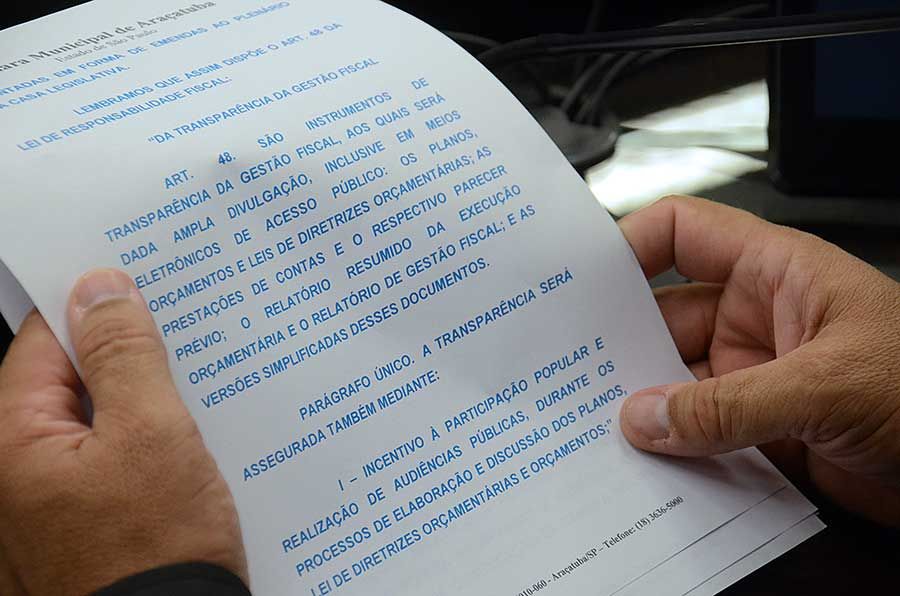 ara Municipal de Araçatuba
Estado de São Paulo
NTADAS EM FORMA DE EMENDAS AO PLENÁRIO
A CASA LEGISLATIVA.
LEMBRAMOS QUE ASSIM DISPÕE O ART. 48 DA
LEI DE RESPONSABILIDADE FISCAL:
"DA TRANSPARÊNCIA DA GESTÃO FISCAL
ART. 48. SÃO INSTRUMENTOS DE
TRANSPARÊNCIA DA GESTÃO FISCAL, AOS QUAIS SERÁ
DADA AMPLA DIVULGAÇÃO, INCLUSIVE EM MEIOS
ELETRÔNICOS DE ACESSO PÚBLICO: OS PLANOS,
ORÇAMENTOS E LEIS DE DIRETRIZES ORÇAMENTÁRIAS; AS
PRESTAÇÕES DE CONTAS E O RESPECTIVO PARECER
PRÉVIO; O RELATÓRIO RESUMIDO DA EXECUÇÃO
ORÇAMENTÁRIA E O RELATÓRIO DE GESTÃO FISCAL; E AS
VERSÕES SIMPLIFICADAS DESSES DOCUMENTOS.
PARÁGRAFO ÚNICO. A TRANSPARÊNCIA SERÁ
ASSEGURADA TAMBÉM MEDIANTE:
I – INCENTIVO À PARTICIPAÇÃO POPULAR E
REALIZAÇÃO DE AUDIÊNCIAS PÚBLICAS, DURANTE OS
PROCESSOS DE ELABORAÇÃO E DISCUSSÃO DOS PLANOS,
LEI DE DIRETRIZES ORÇAMENTÁRIAS E ORÇAMENTOS;"
010-060 - Araçatuba/SP – Telefone: (18) 3636-5000